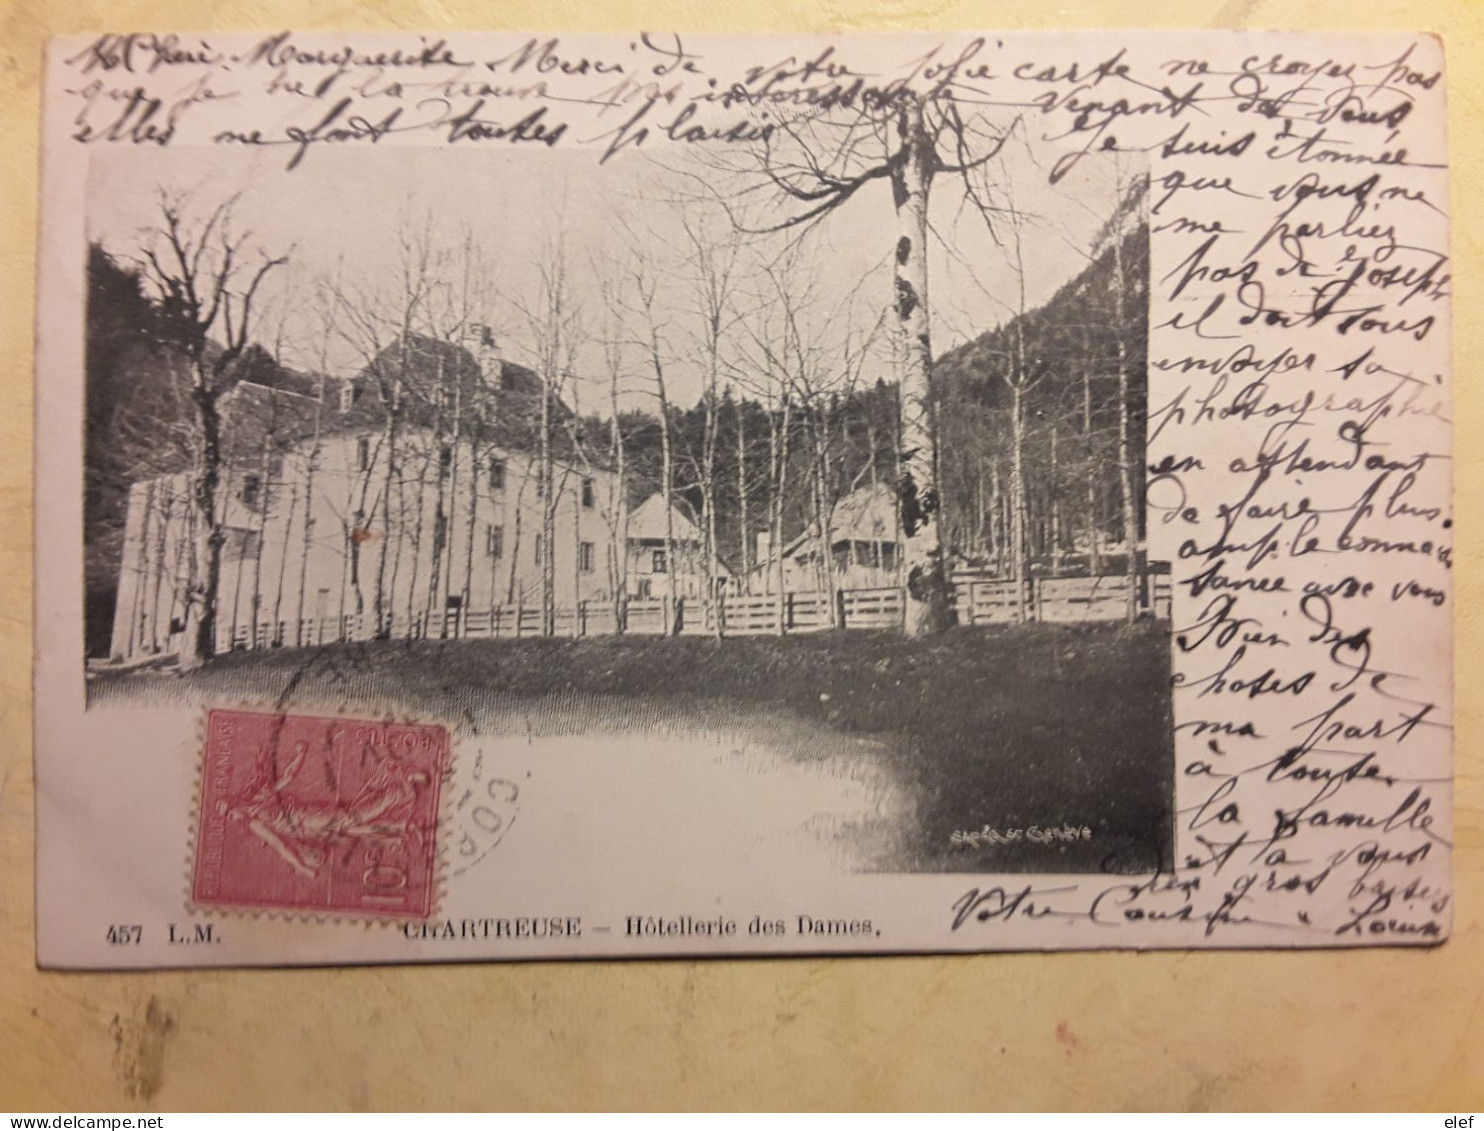 Marguerite Merci de votre jolie carte ne croyez pas
que je ne la trouve pas interessante venant de vous
elles me font toutes plaisir
Je suis étonnée
que vous ne
me parliez
pas de Joseph
il doit vous
envoyer sa
photographie
en attendant
de faire plus
ample connais
sance avec vous
Bien des
choses de
ma part
à toute
la famille
et à vous
gros baisers
Votre Cousine
REPUBLIQUE FRANÇAISE
POSTES
10c
457 L.M.
CHARTREUSE – Hôtellerie des Dames.
elef
delcampe.net